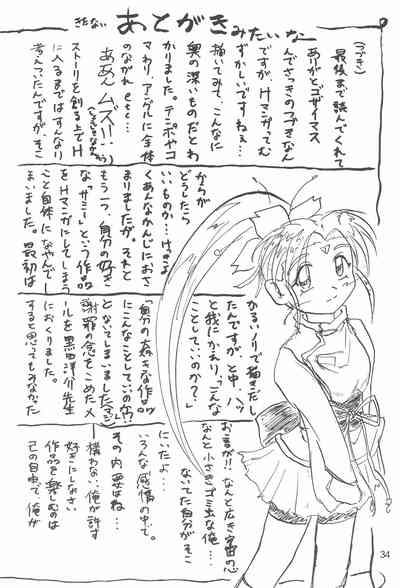 きたない あとがき みたいな
(つづき)
最後まで読んでくれて
ありがとゴザイマス
んでさっきのつづきなん
ですが、Hマンガってむ
ずかしいですねぇ…
描いてみて、こんなに
奥の深いものだとわ
かりました。テンポやコ
マわり、アングルに全体
のながれetc…
ああんムズい!!
ストーリを創る上でH
に入るまではすんなり
考えつたんですが、そこ
からが
どうしたら
いいものか…けっきょ
くあんなかんじにおさ
まりましたが。それと
もう一つ、自分の好き
な「サミー」という作品
をHマンガにしてしまう
こと自体になやんでし
まいました。最初は
かるいノリで描きだし
たんですが、と中、ハッ
と我にかえり、「こんな
ことしていいのか?」
「自分の大好きな作品に
にこんなことしていいの
とないてしまいました
謝罪の念をこめたメ
ールを黒田洋介先生
におくりました。
すると思ってもみなかった
お言が!! なんと広き宇宙の心
なんと小さきゴミ虫な俺…
ないてた自分がそこ
にいたよ…
いろんな感情の中で。
その内要はね…
構わない、俺が許す
好きにしなさい
作品を楽しむのは
己の自由で、俺が
34